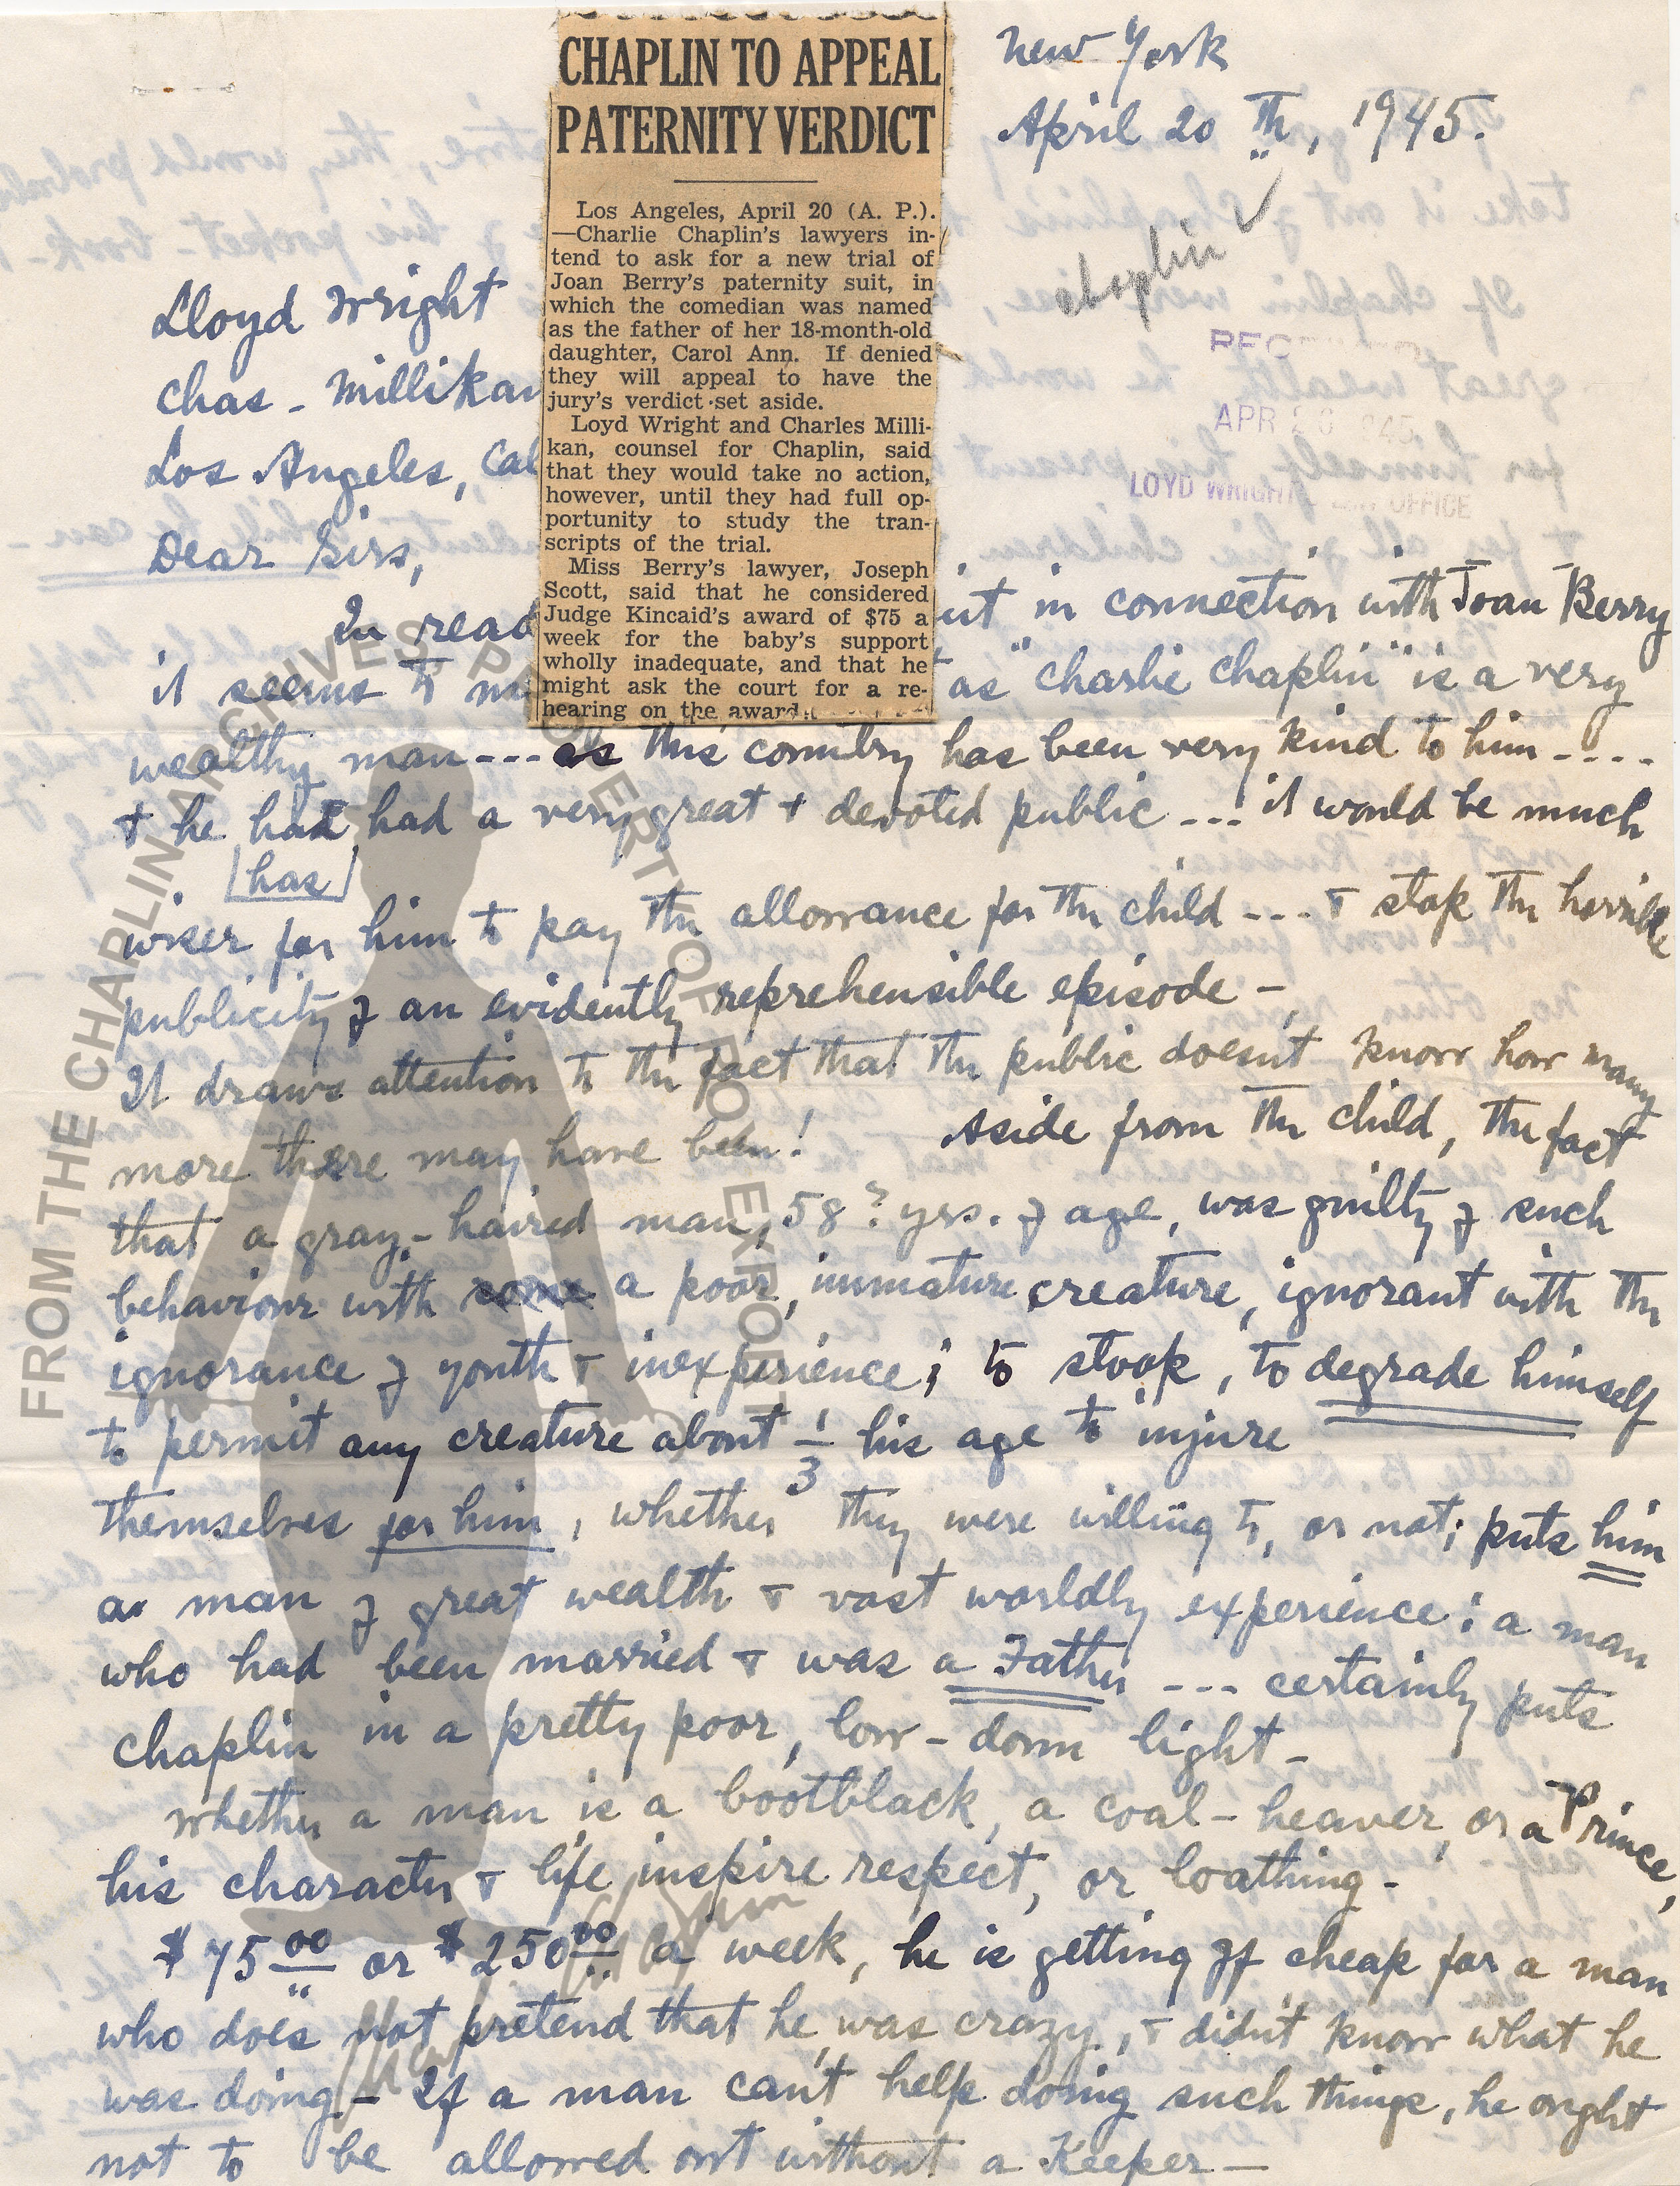 New York
April 20 th, 1945.
chaplin
APR 26 1945
LOYD WRIGHT OFFICE
CHAPLIN TO APPEAL
PATERNITY VERDICT
Los Angeles, April 20 (A. P.).
—Charlie Chaplin's lawyers in-
tend to ask for a new trial of
Joan Berry's paternity suit, in
which the comedian was named
as the father of her 18-month-old
daughter, Carol Ann. If denied
they will appeal to have the
jury's verdict set aside.
Loyd Wright and Charles Milli-
kan, counsel for Chaplin, said
that they would take no action,
however, until they had full op-
portunity to study the tran-
scripts of the trial.
Miss Berry's lawyer, Joseph
Scott, said that he considered
Judge Kincaid's award of $75 a
week for the baby's support
wholly inadequate, and that he
might ask the court for a re-
hearing on the award.
Lloyd Wright
Chas - Millikan
Los Angeles, Cal
Dear Sirs,
In read in connection with Joan Berry
it seems to as "Charlie Chaplin" is a very
wealthy man --- as this country has been very kind to him ----
& he had had a very great & devoted public --- it would be much
[has]
wiser for him to pay the allowance for the child --- & stop the horrible
publicity of an evidently reprehensible episode -
It draws attention to the fact that the public doesn't know how many
more there may have been! Aside from the child, the fact
that a gray-haired man, 58? yrs. of age, was guilty of such
behaviour with some a poor, immature creature, ignorant with the
ignorance of youth & inexperience; to stoop, to degrade himself
to permit any creature about 1/3 his age to injure
themselves for him, whether they were willing to, or not; puts him
a man of great wealth & vast worldly experience: a man
who had been married & was a Father --- certainly puts
Chaplin in a pretty poor, low-down light -
Whether a man is a bootblack, a coal-heaver, or a Prince,
his character & life inspire respect, or loathing -
$75 00 or $250 00 a week, he is getting off cheap for a man
who does not pretend that he was crazy, & didn't know what he
was doing - If a man can't help doing such things, he ought
not to be allowed out without a Keeper -
FROM THE CHAPLIN ARCHIVES PROPERTY OF ROY EXPORT